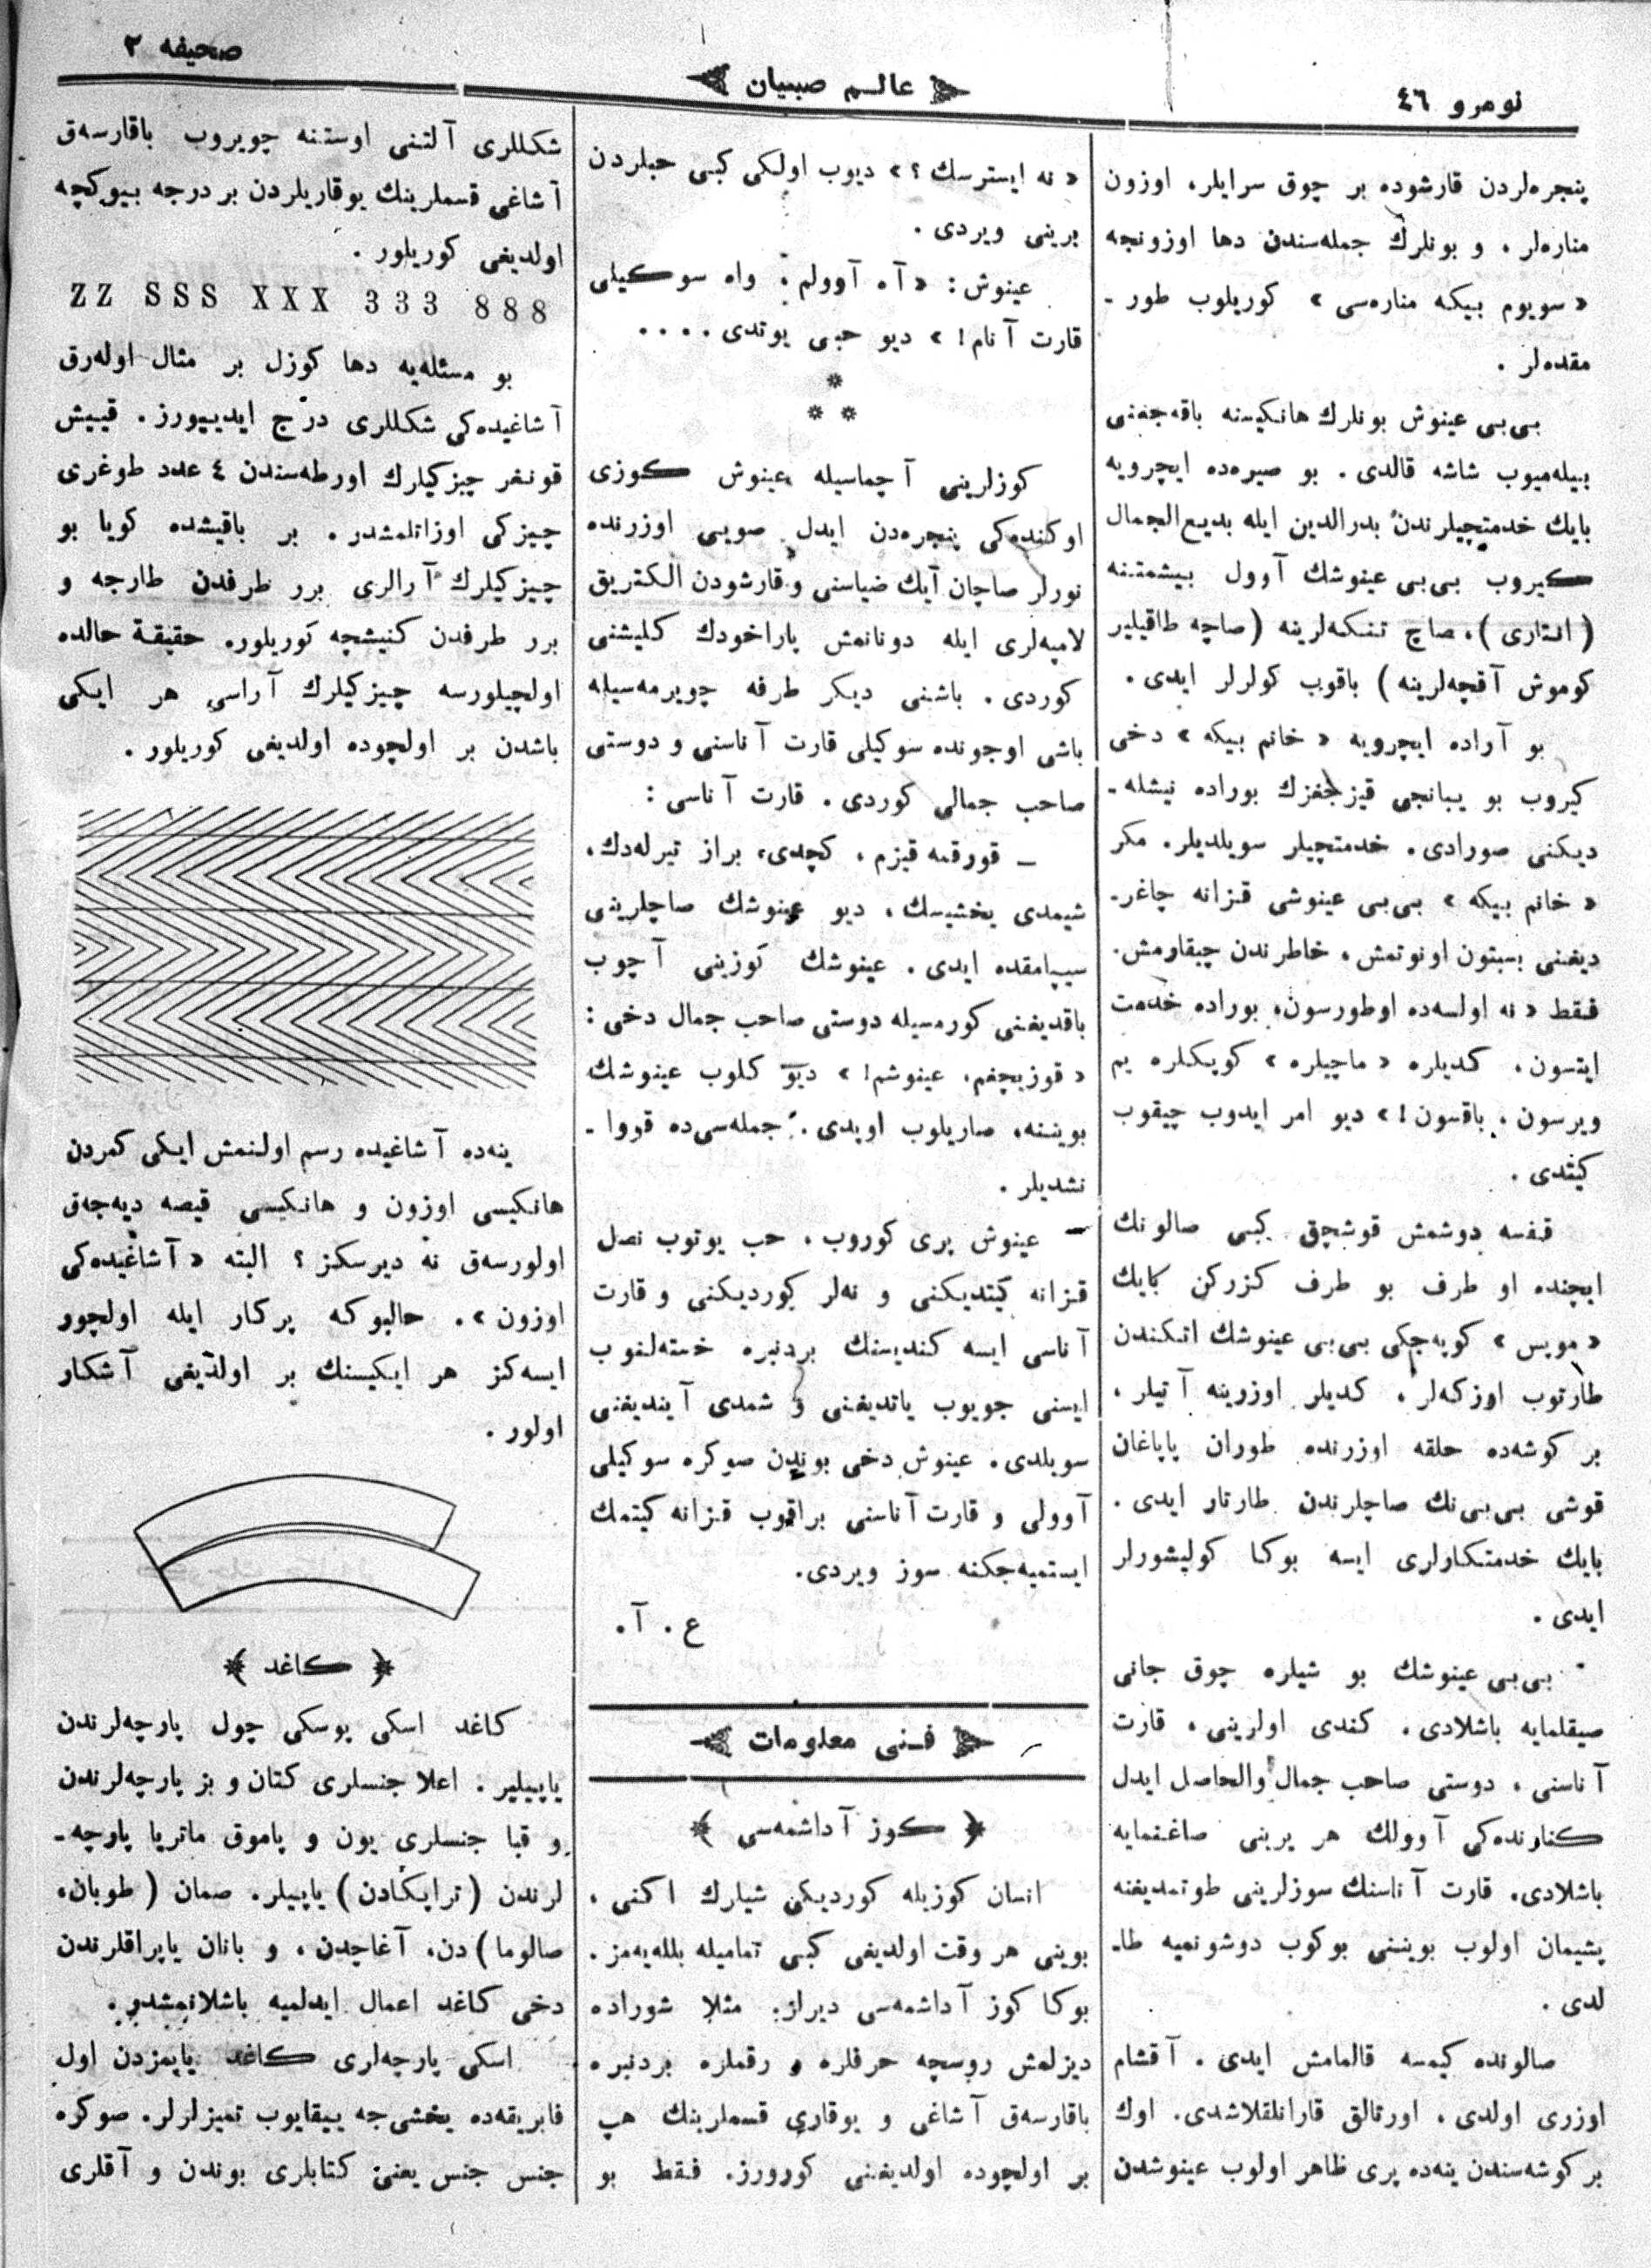 نومرو ٤٦
عالم صبیان
صحیفه ٣
پنجره‌لردن قارشوده بر چوق سرایلر، اوزون
مناره‌لر، و بونلرك جمله‌سندن دها اوزونجه
« سویوم بیكه مناره‌سی » كوریلوب طور ـ
مقده‌لر .
بی‌بی عینوش بونلرك هانكیسنه باقه‌جغنی
بیله‌میوب شاشه قالدی . بو صیره‌ده ایچرویه
بایك خدمتچیلرندن بدرالدین ایله بدیع‌الجمال
كیروب بی‌بی عینوشك آوول بیشمتنه
( انتاری )، صاچ تنكه‌لرینه ( صاچه طاقیلیر
كوموش آقچه‌لرینه ) باقوب كولرلر ایدی .
بو آراده ایچرویه « خانم بیكه » دخی
كیروب بو یبانجی قیزجغزك بوراده نیشله ـ
دیكنی صورادی . خدمتچیلر سویلدیلر. مكر
« خانم بیكه » بی‌بی عینوشی قزانه چاغر ـ
دیغنی بسبتون اونوتمش ، خاطرندن چیقارمش.
فقط « نه اولسه‌ده اوطورسون، بوراده خدمت
ایتسون ، كدیلره « ماچیلره » كوپكلره یم
ویرسون ، باقسون ! » دیو امر ایدوب چیقوب
كیتدی .
قفسه دوشمش قوشچق كبی صالونك
ایچنده او طرف بو طرف كزركن بایك
« موپس » كوپه‌جكی بی‌بی عینوشك اتكندن
طارتوب اوزكه‌لر ، كدیلر اوزرینه آتیلر ،
بر كوشه‌ده حلقه اوزرنده طوران پاپاغان
قوشی بی‌بی‌نك صاچلرندن طارتار ایدی .
بایك خدمتكارلری ایسه بوكا كولیشورلر
ایدی .
بی‌بی عینوشك بو شیلره چوق جانی
صیقلمایه باشلادی . كندی اولرینی ، قارت
آناسنی ، دوستی صاحب جمال والحاصل ایدل
كنارنده‌كی آوولك هر یرینی صاغنمایه
باشلادی. قارت آناسنك سوزلرینی طوتمدیغنه
پشیمان اولوب بویننی بوكوب دوشونمیه طا ـ
لدی .
صالونده كیمسه قالمامش ایدی . آقشام
اوزری اولدی ، اورتالق قارانلقلاشدی. اوك
بر كوشه‌سندن ینه‌ده پری ظاهر اولوب عینوشدن
« نه ایسترسك ؟ » دیوب اولكی كبی حبلردن
برینی ویردی .
عینوش : « آه آوولم ، واه سوكیلی
قارت آنام ! » دیو حبی یوتدی . . . .
*
* *
كوزلرینی آچماسیله عینوش كوزی
اوكنده‌كی پنجره‌دن ایدل صویی اوزرنده
نورلر صاچان آیك ضیاسنی و قارشودن الكتریق
لامپه‌لری ایله دونانمش پاراخودك كلیشنی
كوردی . باشنی دیكر طرفه چویرمه‌سیله
باشی اوجونده سوكیلی قارت آناسنی و دوستی
صاحب جمالی كوردی . قارت آناسی :
ـ قورقمه قیزم ، كچدی، براز تیرله‌دك،
شیمدی یخشیسك ، دیو عینوشك صاچلرینی
سیپامقده ایدی . عینوشك كوزینی آچوب
باقدیغنی كورمسیله دوستی صاحب جمال دخی :
« قوزیچغم، عینوشم ! » دیو كلوب عینوشك
بویننه، صاریلوب اوپدی . جمله‌سی‌ده قووا ـ
نشدیلر .
ـ عینوش پری كوروب ، حب یوتوب نصل
قزانه كیتدیكنی و نه‌لر كوردیكنی و قارت
آناسی ایسه كندیسنك بردنبره خسته‌لنوب
ایسنی جویوب یاتدیغنی و شمدی آیندیغنی
سویلدی. عینوش دخی بوندن صوكره سوكیلی
آوولی و قارت آناسنی براقوب قزانه كیتمك
ایستمیه‌جكنه سوز ویردی.
ع . آ.
فنی معلومات
كوز آداشمه‌سی
انسان كوزیله كوردیكی شیلرك اكنی ،
بوینی هر وقت اولدیغی كبی تمامیله بلله‌یه‌مز .
بوكا كوز آداشمه‌سی دیرلر. مثلا شوراده
دیزلمش روسچه حرفلره و رقملره بردنبره
باقارسه‌ق آشاغی و یوقاری قسملرینك هپ
بر اولچوده اولدیغنی كورورز. فقط بو
شكللری آلتنی اوستنه چویروب باقارسه‌ق
آشاغی قسملرینك یوقاریلردن بر درجه بیوكچه
اولدیغی كوریلور .
ZZ SSS XXX 333 888
بو مسئله‌یه دها كوزل بر مثال اوله‌رق
آشاغیده‌كی شكللری درج ایدییورز . قییش
قونغر چیزكیلرك اورطه‌سندن ٤ عدد طوغری
چیزكی اوزاتلمشدر. بر باقیشده كویا بو
چیزكیلرك آرالری برر طرفدن طارجه و
برر طرفدن كنیشچه كوریلور. حقیقة حالده
اولچیلورسه چیزكیلرك آراسی هر ایكی
باشدن بر اولچوده اولدیغی كوریلور .
ینه‌ده آشاغیده رسم اولنمش ایكی كمردن
هانكیسی اوزون و هانكیسی قیصه دیه‌جه‌ق
اولورسه‌ق نه دیرسكز ؟ البته « آشاغیده‌كی
اوزون ». حالبوكه پركار ایله اولچور
ایسه‌كز هر ایكیسنك بر اولدیغی آشكار
اولور .
كاغد
كاغد اسكی یوسكی چول پارچه‌لرندن
یاپیلیر . اعلا جنسلری كتان و بز پارچه‌لرندن
و قبا جنسلری یون و پاموق ماتریا پارچه ـ
لرندن ( تراپكادن ) یاپیلر. صمان ( طوبان،
صالوما ) دن، آغاچدن ، و بانان یاپراقلرندن
دخی كاغد اعمال ایدلمیه باشلانمشدر.
اسكی پارچه‌لری كاغد یاپمزدن اول
فابریقه‌ده یخشی‌جه ییقایوب تمیزلرلر. صوكره
جنس جنس یعنی كتابلری بوندن و آقلری